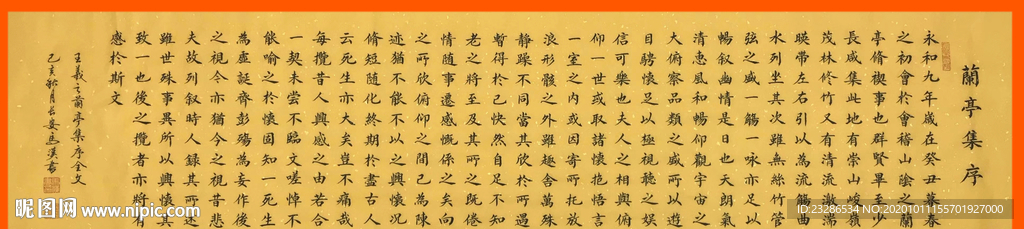 蘭亭集序
永和九年歲在癸丑暮春
之初會於會稽山陰之蘭
亭脩稧事也群賢畢至少
長咸集此地有崇山峻嶺
茂林脩竹又有清流激湍
暎帶左右引以為流觴曲
水列坐其次雖無絲竹管
弦之盛一觴一詠亦足以
暢叙幽情是日也天朗氣
清惠風和暢仰觀宇宙之
大俯察品類之盛所以遊
目騁懷足以極視聽之娛
信可樂也夫人之相與俯
仰一世或取諸懷抱悟言
一室之內或因寄所託放
浪形骸之外雖趣舍萬殊
靜躁不同當其欣於所遇
暫得於己快然自足不知
老之將至及其所之既倦
情隨事遷感慨係之矣向
之所欣俯仰之間已為陳
迹猶不能不以之興懷况
脩短隨化終期於盡古人
云死生亦大矣豈不痛哉
每攬昔人興感之由若合
一契未嘗不臨文嗟悼不
能喻之於懷固知一死生
為虛誕齊彭殤為妄作後
之視今亦猶今之視昔悲
夫故列叙時人錄其所述
雖世殊事異所以興懷其
致一也後之攬者亦將有
感於斯文
王羲之蘭亭集序全文
己亥秋月長安馬漢書
昵图网 www.nipic.com
ID:23286534 NO:20201011155701927000